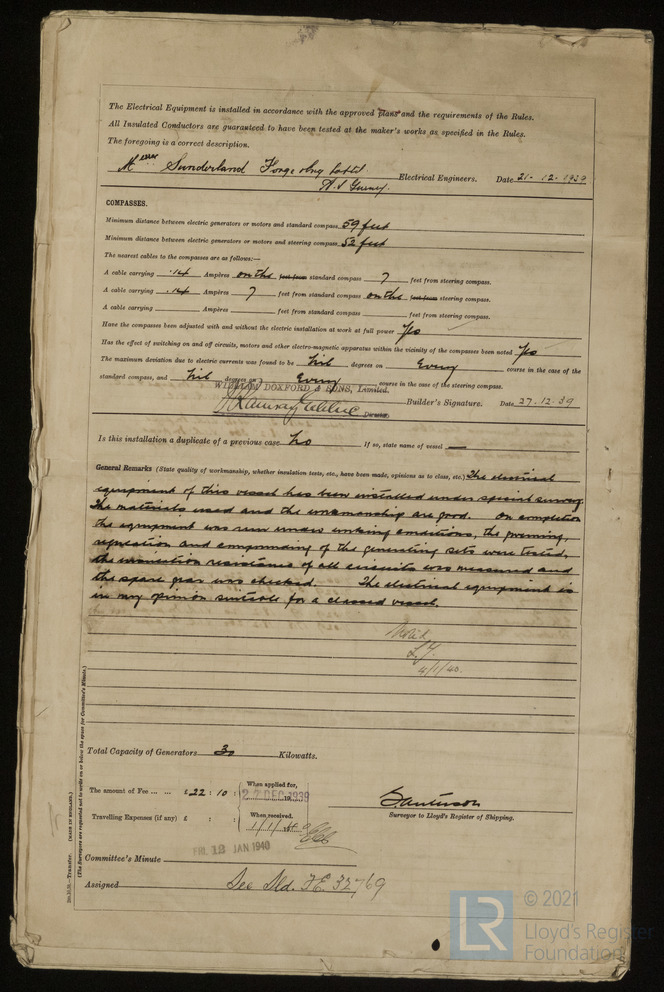 The Electrical Equipment is installed in accordance with the approved plans and the requirements of the Rules.
All Insulated Conductors are guaranteed to have been tested at the maker's works as specified in the Rules.
The foregoing is a correct description.
Messrs Sunderland Forge & Eng Co Ltd
Electrical Engineers. Date 21-12-1939
COMPASSES.
Minimum distance between electric generators or motors and standard compass 59 feet
Minimum distance between electric generators or motors and steering compass 52 feet
The nearest cables to the compasses are as follows:—
A cable carrying .14 Ampères on the feet from standard compass 7 feet from steering compass.
A cable carrying .14 Ampères 7 feet from standard compass on the feet from steering compass.
A cable carrying Ampères feet from standard compass feet from steering compass.
Have the compasses been adjusted with and without the electric installation at work at full power Yes
Has the effect of switching on and off circuits, motors and other electro-magnetic apparatus within the vicinity of the compasses been noted Yes
The maximum deviation due to electric currents was found to be Nil degrees on Every course in the case of the
standard compass, and Nil degrees on Every course in the case of the steering compass.
WILLIAM DOXFORD & SONS, Limited.
Builder's Signature. Date 27.12.39
Director
Is this installation a duplicate of a previous case No If so, state name of vessel —
General Remarks (State quality of workmanship, whether insulation tests, etc., have been made, opinions as to class, etc.) The electrical
equipment of this vessel has been installed under special survey.
The materials used and the workmanship are good. On completion
the equipment was run under working conditions, the governing,
regulation and compounding of the generating sets were tested,
the insulation resistance of all circuits was measured and
the spare gear was checked. The electrical equipment is
in my opinion suitable for a classed vessel.
Noted
4/1/40.
Total Capacity of Generators 30 Kilowatts.
The amount of Fee ... ... £22 : 10 : When applied for,
22 DEC 1939
Travelling Expenses (if any) £ : : When received.
1/1/40
Surveyor to Lloyd's Register of Shipping.
FRI. 12 JAN 1940
Committee's Minute
Assigned See Sld. F.E. 32769
Transfer. (MADE IN ENGLAND.)
(The Surveyors are requested not to write on or below the space for Committee's Minute.)
© 2021
LR
Lloyd's Register
Foundation